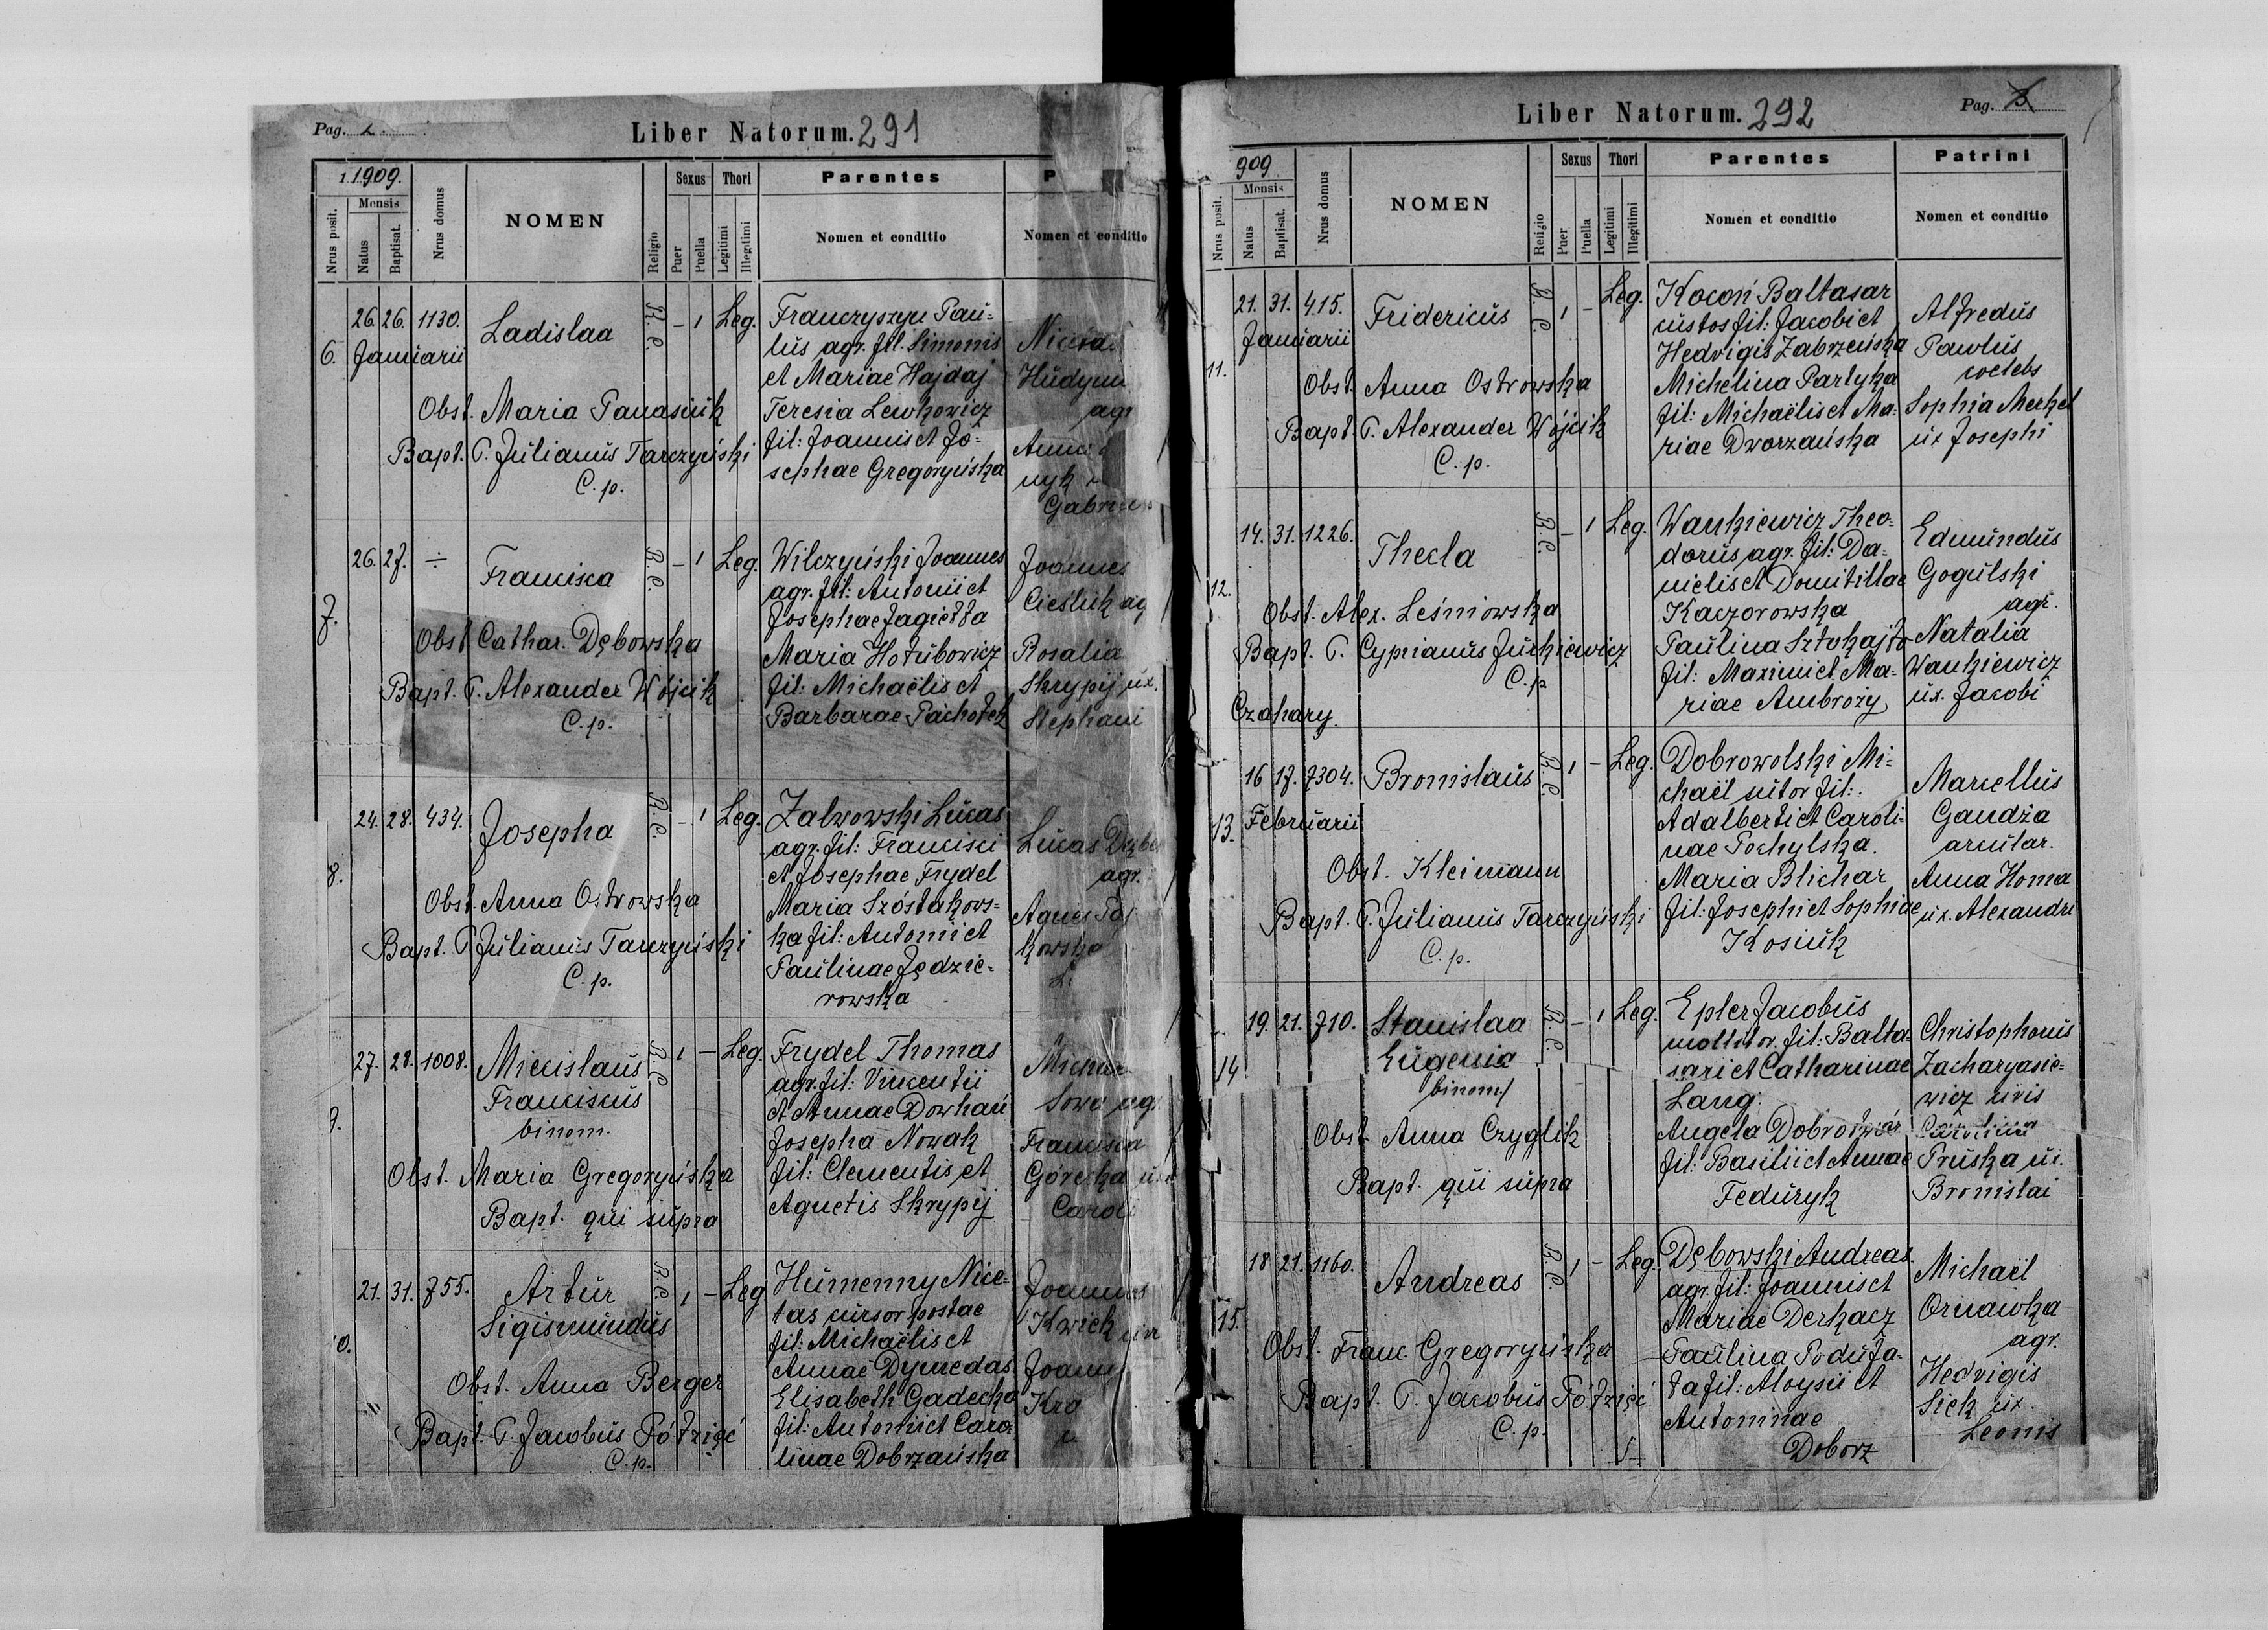 Pag. 2.
Liber Natorum. 291
1909.
Nrus posit.
Mensis
Natus
Baptisat.
Nrus domus
NOMEN
Religio
Sexus
Puer
Puella
Thori
Legitimi
Illegitimi
Parentes
Nomen et conditio
P
Nomen et conditio
6.
26. 26. 1130.
Januarii
Ladislaa
R. C.
- 1 Leg.
Franczyszyn Pau-
lus agr. fil. Simonis
et Mariae Hajdaj
Teresia Lewkowicz
fil: Joannis et Jo-
sephae Gregoryńska
Hudym
agr
Gabri
Obst. Maria Panasiuk
Bapt. P. Julianus Tarczyński
C. p.
7.
26. 27. ÷
Francisca
R. C.
- 1 Leg.
Wilczyński Joannes
agr. fil: Antonii et
Josephae Jagiełła
Maria Hołubowicz
fil: Michaëlis et
Barbarae Pachołek
Joannes
Cieśluk ag
Rosalia
Skrypij ux.
Stephani
Obst. Cathar. Dębowska
Bapt. P. Alexander Wójcik
C. p.
8.
24. 28. 434.
Josepha
R. C.
- 1 Leg.
Zalwowski Lucas
agr. fil: Francisci
et Josephae Frydel
Maria Szóstakows-
ka fil: Antonii et
Paulinae Jędzie-
rowska
Lucas
agr.
Agnes
kowska
Obst. Anna Ostrowska
Bapt. P. Julianus Tarczyński
C. p.
9.
27. 28. 1008.
Miecislaus
Franciscus
binom.
R. C.
1 - Leg.
Frydel Thomas
agr. fil: Vincentii
et Annae Dowhań
Josepha Nowak
fil: Clementis et
Agnetis Skrypij
Sowa agr
Francisca
Górecka ux
Caroli
Obst. Maria Gregoryńska
Bapt. qui supra
10.
21. 31. 755.
Artur
Sigismundus
R. C.
1 - Leg
Humenny Nice-
tas cursor postae
fil: Michaëlis et
Annae Dymedas
Elisabeth Gadecka
fil: Antonii et Caro-
linae Dobrzańska
Joannes
Kwick civ
Joann
Kra
Obst. Anna Berger
Bapt. P. Jacobus Półzięć
C. p.
Liber Natorum. 292
Pag. 3
909
Nrus posit.
Mensis
Natus
Baptisat.
Nrus domus
NOMEN
Religio
Sexus
Puer
Puella
Thori
Legitimi
Illegitimi
Parentes
Nomen et conditio
Patrini
Nomen et conditio
11.
21. 31. 415.
Januarii
Fridericus
R. C.
1 - Leg.
Kocoń Baltasar
custos fil: Jacobi et
Hedvigis Zabrzeńska
Michelina Partyka
fil: Michaëlis et Ma-
riae Dworzańska
Alfredus
Pawlus
coelebs
Sophia Merkel
ux Josephi
Obst. Anna Ostrowska
Bapt. P. Alexander Wójcik
C. p.
12.
14. 31. 1226.
Thecla
R. C.
- 1 Leg.
Wankiewicz Theo-
dorus agr. fil: Da-
nielis et Domitillae
Kaczorowska
Paulina Sztokajło
fil: Maximi et Ma-
riae Ambroży
Edmundus
Gogulski
agr.
Natalia
Wankiewicz
ux. Jacobi
Obst. Alex. Leśniowska
Bapt. P. Cyprianus Jurkiewicz
C. p
Czahary.
13.
16 17. 7304.
Februarii
Bronislaus
R. C.
1 - Leg.
Dobrowolski Mi-
chaël sutor fil:
Adalberti et Caroli-
nae Pochylska.
Maria Blichar
fil: Josephi et Sophiae
Kosiuk
Marcellus
Gandża
arcular.
Anna Homa
ux. Alexandri
Obst. Kleimann
Bapt. P. Julianus Tarczyński
C. p.
14
19. 21. 710.
Stanislaa
Eugenia
binom/
R. C.
- 1 Leg.
Epler Jacobus
molitor. fil: Balta-
sari et Catharinae
Lang
Angela Dobrotwór
fil: Basilii et Annae
Feduryk
Christophorus
Zacharyasie-
wicz civis
Carolina
Pruska ux.
Bronislai
Obst. Anna Czyglik
Bapt. qui supra
15.
18 21. 1160.
Andreas
R. C.
1 - Leg.
Dębowski Andreas.
agr. fil: Joannis et
Mariae Derkacz
Paulina Poduła-
ta fil: Aloysii et
Antoninae
Doborz
Michaël
Ornawka
agr.
Hedvigis
Sick ux.
Leonis
Obst. Franc. Gregoryńska
Bapt. P. Jacobus Półzięć
C. p.